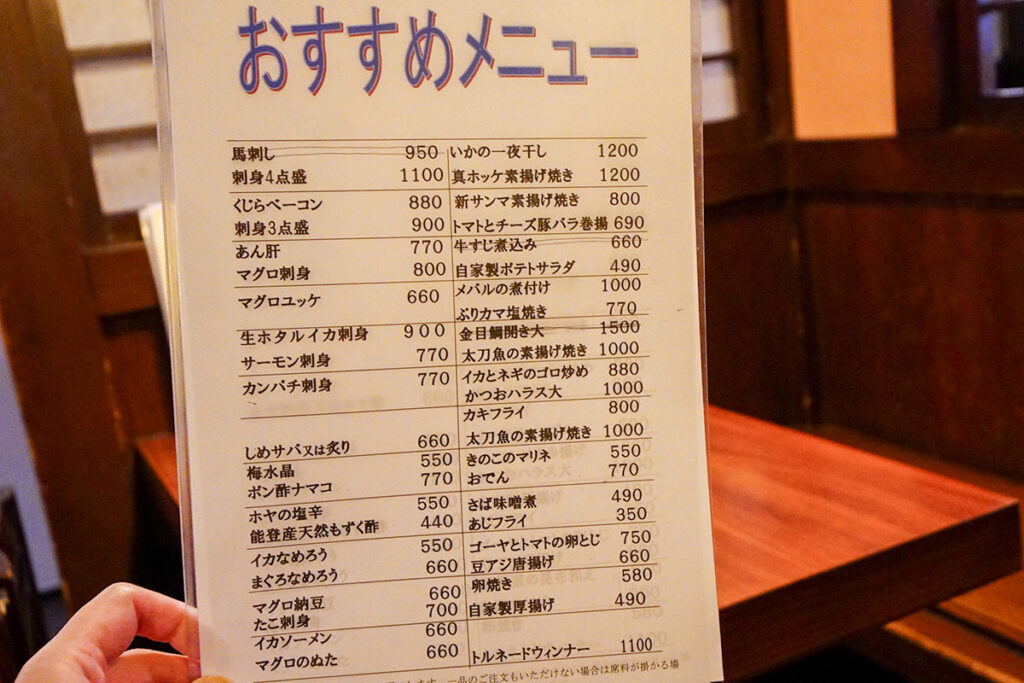 おすすめメニュー
馬刺し 950
刺身4点盛 1100
くじらベーコン 880
刺身3点盛 900
あん肝 770
マグロ刺身 800
マグロユッケ 660
生ホタルイカ刺身 900
サーモン刺身 770
カンパチ刺身 770
しめサバ又は炙り 660
梅水晶 550
ポン酢ナマコ 770
ホヤの塩辛 550
能登産天然もずく酢 440
イカなめろう 550
まぐろなめろう 660
マグロ納豆 660
たこ刺身 700
イカソーメン 660
マグロのぬた 660
いかの一夜干し 1200
真ホッケ素揚げ焼き 1200
新サンマ素揚げ焼き 800
トマトとチーズ豚バラ巻揚 690
牛すじ煮込み 660
自家製ポテトサラダ 490
メバルの煮付け 1000
ぶりカマ塩焼き 770
金目鯛開き大 1500
太刀魚の素揚げ焼き 1000
イカとネギのゴロ炒め 880
かつおハラス大 1000
カキフライ 800
太刀魚の素揚げ焼き 1000
きのこのマリネ 550
おでん 770
さば味噌煮 490
あじフライ 350
ゴーヤとトマトの卵とじ 750
豆アジ唐揚げ 660
卵焼き 580
自家製厚揚げ 490
トルネードウィンナー 1100
一品のご注文もいただけない場合は席料が掛かる場